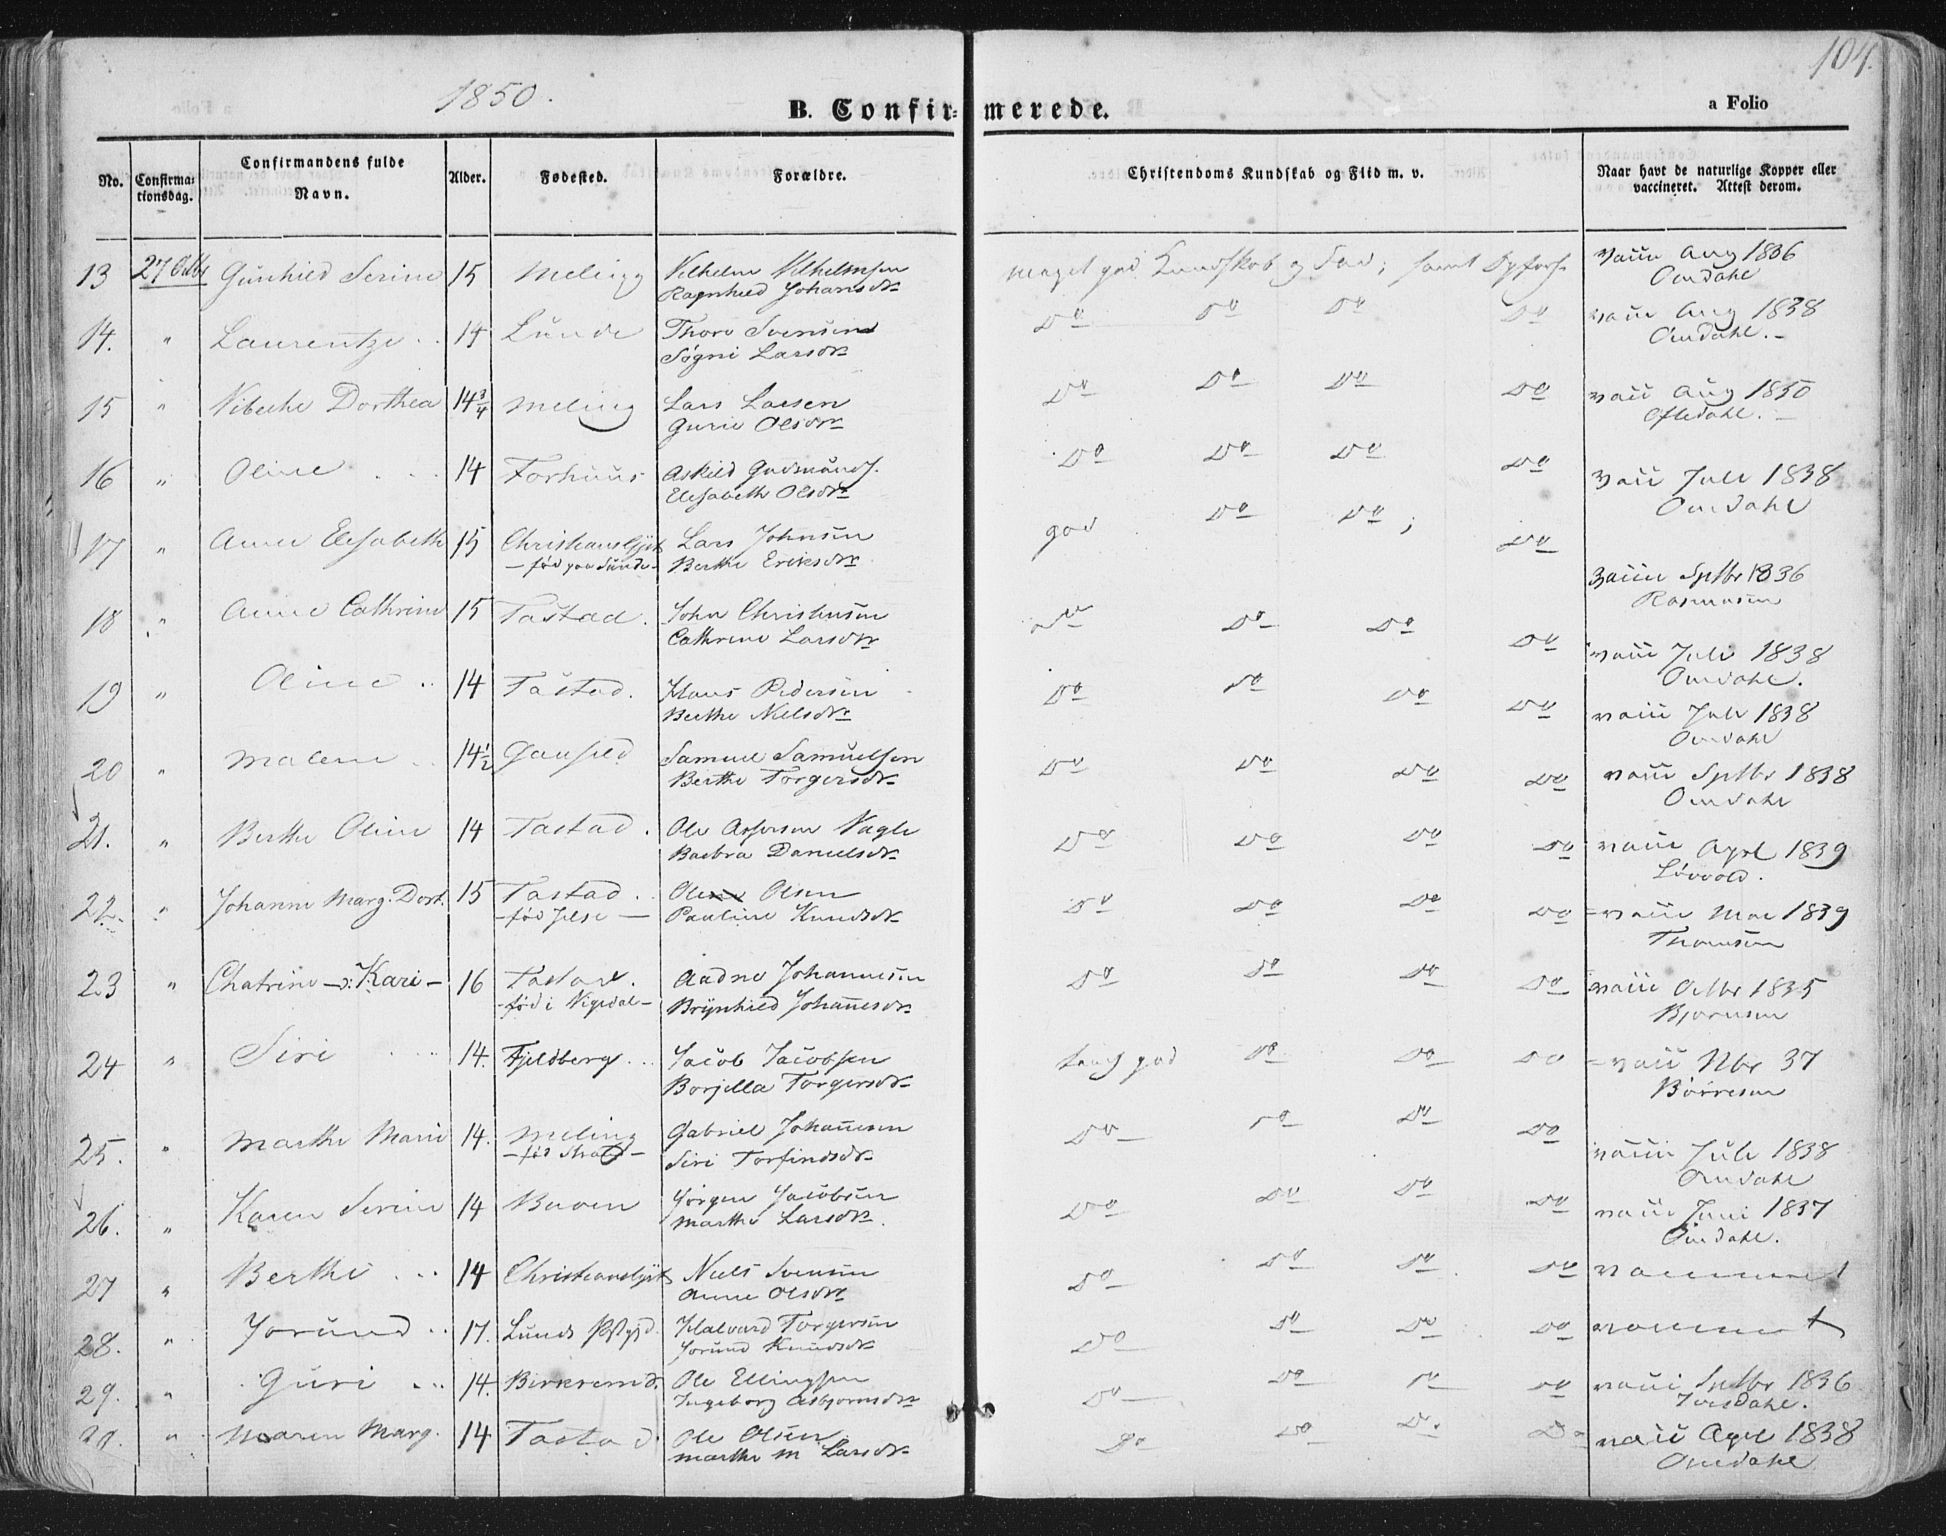 1850.
104.
B. Confir=
merede.
a Folio
No.
Confirma=
tionsdag.
Confirmandens fulde
Navn.
Alder.
Fødested.
Forældre.
Christendoms Kundskab og Flid m. v.
Naar havt de naturlige Kopper eller
vaccineret. Attest derom.
13 27 Octbr Gunhild Serine 15 Meling Vilhelm Vilhelmsen meget god Kundskab og samt vacc Aug 1836
Ragnhild Johansdr Omdahl
14. " Laurentze .. 14 Lunde Thore Svensen Do Do Do Do vacc Aug 1838
Søgni Larsdr Omdahl. -
15 " Vibeche Dorthea 14 3/4 Meling Lars Larsen Do Do Do Do vacc Aug 1850
Gurie Olsdr
16 " Oline 14 Forhuus Askild Gudmunds. Do Do Do Do vacc Juli 1838
Elisabeth Olsdr Omdahl
17 " Anne Elisabeth 15 Christianslyst Lars Johnsen god Do Do ; Do
- fød paa Sunde - Berthe Eriksdr vacc Septbr 1836
Rasmusen
18 " Anne Cathrine 15 Tastad. John Christensen do Do Do Do
Cathrine Larsdr vacc Juli 1838
Omdahl.
19 " Oline .. 14 Tastad. Hans Pedersen Do Do Do Do vacc Juli 1838
Berthe Nielsdr Omdahl
20 Malene .. 14 1/2 Gausel Samuel Samuelsen Do Do Do Do vacc Septbr 1838
Berthe Torgersdr Omdahl
21. " Berthe Oline 14 Tastad. Ole Asgersen Nagle Do Do Do Do vacc April 1839
Barbra Danielsdr Løvold.
22. " Johanne Marg. Dort. 15 Tastad. Ole Olsen Do Do Do Do vacc Mai 1839
- fød Jelse - Pauline Knudsdr Thomsen
23 " Chatrine - ɔ: Kari - 16 Tastad. Aadne Johannesen Do Do Do Do vacc Octbr 1835
- fød i Vigedal - Brynhild Johannesdr Bjornsen
24 " Siri 14. Fjeldberg .. Jacob Jacobsen temlig god Do Do Do vacc Nbr 37
Borjella Torgersdr Børresen
25. " Marthe Marie 14. Meling Gabriel Johannesen Do Do Do Do
- fød Strand - Siri Torfindsdr vacc Juli 1838
Omdahl
26. " Karen Serine 14 Buøen Jørgen Jacobsen Do Do Do Do vacc Juni 1837
Marthe Larsdr. Omdahl.
27 " Berthe ... 14 Christianslyst Niels Svensen Do Do Do Do vaccineret
Anne Olsdr
28. " Jorund .. 17. Lunds Pstgjd. Halvard Torgersen Do Do Do Do vaccineret
Jorund Knudsdr
29. " Guri ... 14. Birkremd. Ole Ellingsen Do Do Do Do vacc Septbr 1836
Ingeborg Asbjornsdr
30. " Maren Marg. 14 Tastad Ole Olsen Do Do Do Do vacc April 1838
Marthe M Larsdr Omdahl